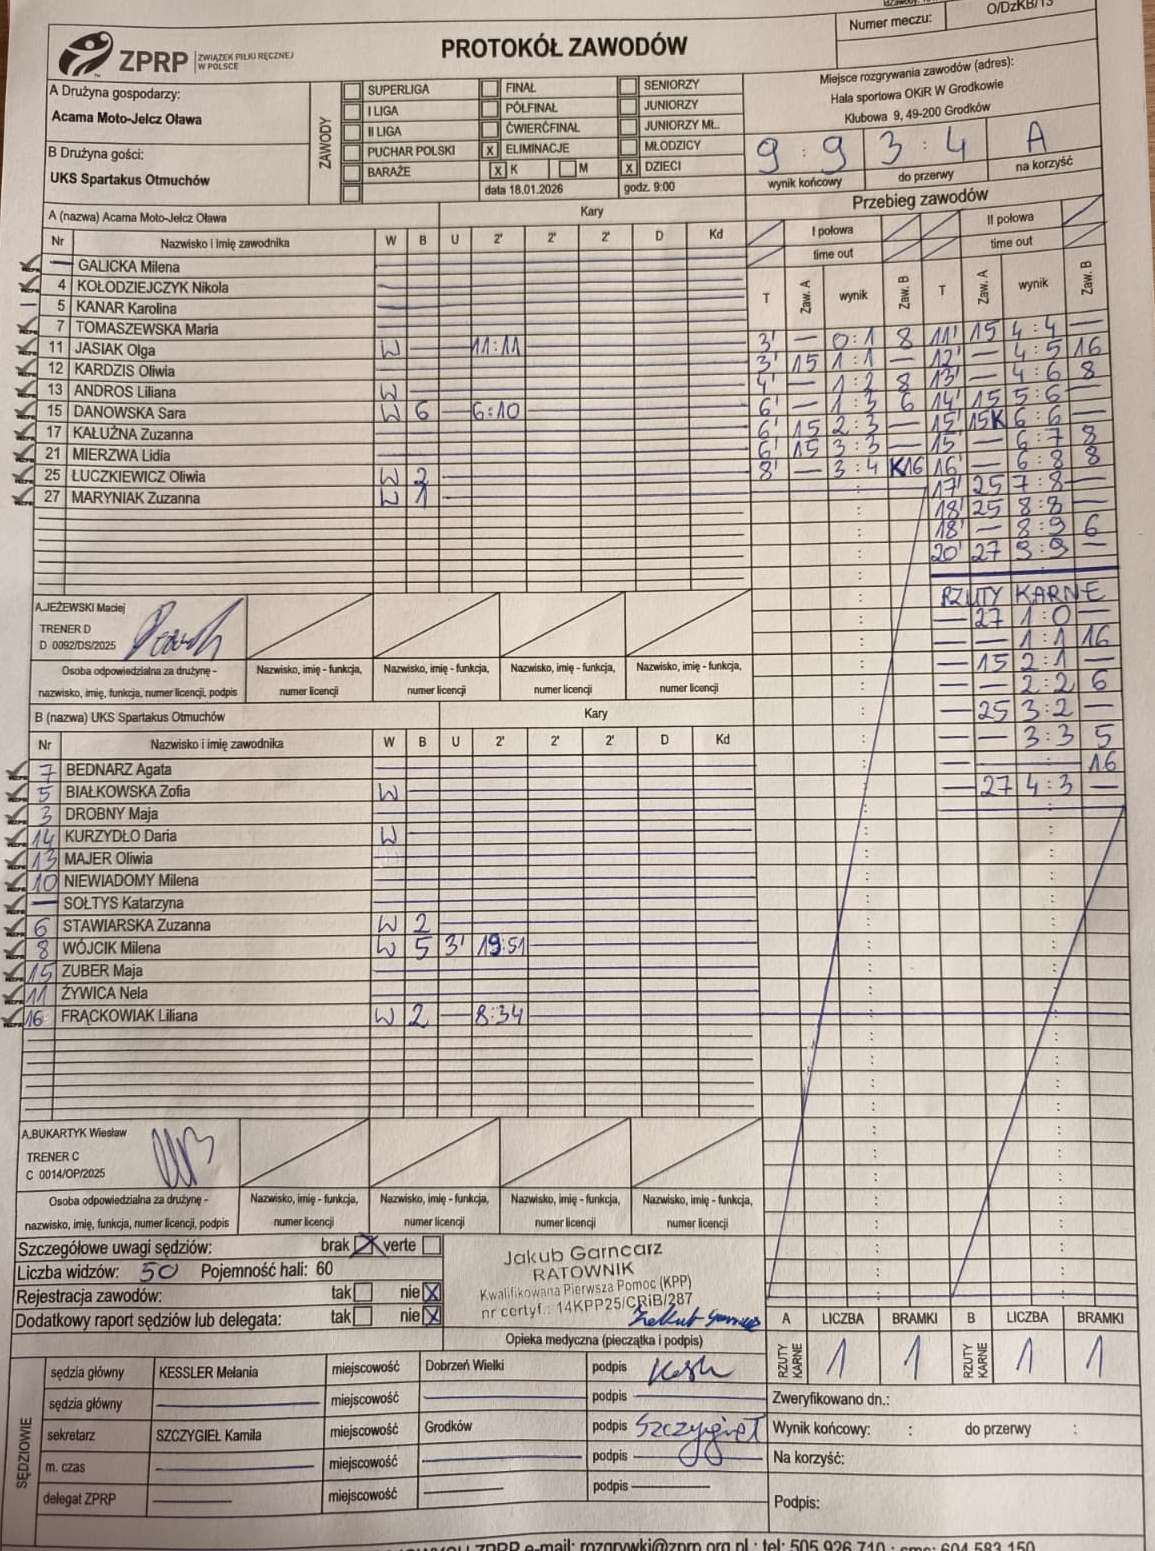 Numer meczu:
O/DzKB/13
ZPRP
ZWIĄZEK PIŁKI RĘCZNEJ
W POLSCE
PROTOKÓŁ ZAWODÓW
A Drużyna gospodarzy:
Acama Moto-Jelcz Oława
B Drużyna gości:
UKS Spartakus Otmuchów
ZAWODY
SUPERLIGA
I LIGA
II LIGA
PUCHAR POLSKI
BARAŻE
FINAŁ
PÓŁFINAŁ
ĆWIERĆFINAŁ
X ELIMINACJE
X K M
data 18.01.2026
SENIORZY
JUNIORZY
JUNIORZY MŁ.
MŁODZICY
X DZIECI
godz. 9:00
Miejsce rozgrywania zawodów (adres):
Hala sportowa OKiR W Grodkowie
Klubowa 9, 49-200 Grodków
9 : 9 3 : 4 A
wynik końcowy do przerwy na korzyść
A (nazwa) Acama Moto-Jelcz Oława Kary
Nr Nazwisko i imię zawodnika W B U 2' 2' 2' D Kd
— GALICKA Milena
4 KOŁODZIEJCZYK Nikola
5 KANAR Karolina
7 TOMASZEWSKA Maria
11 JASIAK Olga W 11:11
12 KARDZIS Oliwia
13 ANDROS Liliana W
15 DANOWSKA Sara W 6 — 6:10
17 KAŁUŻNA Zuzanna
21 MIERZWA Lidia
25 ŁUCZKIEWICZ Oliwia W 2
27 MARYNIAK Zuzanna W 1
A.JEŻEWSKI Maciej
TRENER D
D 0092/DS/2025
Osoba odpowiedzialna za drużynę -
nazwisko, imię, funkcja, numer licencji, podpis
Nazwisko, imię - funkcja,
numer licencji
Nazwisko, imię - funkcja,
numer licencji
Nazwisko, imię - funkcja,
numer licencji
Nazwisko, imię - funkcja,
numer licencji
B (nazwa) UKS Spartakus Otmuchów Kary
Nr Nazwisko i imię zawodnika W B U 2' 2' 2' D Kd
7 BEDNARZ Agata
5 BIAŁKOWSKA Zofia W
3 DROBNY Maja
14 KURZYDŁO Daria W
13 MAJER Oliwia
10 NIEWIADOMY Milena
— SOŁTYS Katarzyna
6 STAWIARSKA Zuzanna W 2
8 WÓJCIK Milena W 5 3' 19:51
15 ZUBER Maja
11 ŻYWICA Nela
16 FRĄCKOWIAK Liliana W 2 — 8:34
A.BUKARTYK Wiesław
TRENER C
C 0014/OP/2025
Osoba odpowiedzialna za drużynę -
nazwisko, imię, funkcja, numer licencji, podpis
Nazwisko, imię - funkcja,
numer licencji
Nazwisko, imię - funkcja,
numer licencji
Nazwisko, imię - funkcja,
numer licencji
Nazwisko, imię - funkcja,
numer licencji
Przebieg zawodów
I połowa II połowa
time out time out
T Zaw. A wynik Zaw. B T Zaw. A wynik Zaw. B
3' — 0:1 8 11' 15 4:4 —
3' 15 1:1 — 12' — 4:5 16
4' — 1:2 8 13' — 4:6 8
6' — 1:3 6 14' 15 5:6 —
6' 15 2:3 — 15' 15K 6:6 —
6' 15 3:3 — 15' — 6:7 8
8' — 3:4 K16 16' — 6:8 8
17' 25 7:8 —
18' 25 8:8 —
18' — 8:9 6
20' 27 9:9 —
RZUTY KARNE
— 27 1:0 —
— — 1:1 16
— 15 2:1 —
— — 2:2 6
— 25 3:2 —
— — 3:3 5
— : 16
— 27 4:3 —
Szczegółowe uwagi sędziów: brak X verte
Liczba widzów: 50 Pojemność hali: 60
Rejestracja zawodów: tak nie X
Dodatkowy raport sędziów lub delegata: tak nie X
Jakub Garncarz
RATOWNIK
Kwalifikowana Pierwsza Pomoc (KPP)
nr certyf.: 14KPP25/CRiB/287
Opieka medyczna (pieczątka i podpis)
A LICZBA BRAMKI B LICZBA BRAMKI
RZUTY KARNE 1 1 RZUTY KARNE 1 1
SĘDZIOWIE
sędzia główny KESSLER Melania miejscowość Dobrzeń Wielki podpis
sędzia główny miejscowość podpis
sekretarz SZCZYGIEŁ Kamila miejscowość Grodków podpis Szczygieł
m. czas miejscowość podpis
delegat ZPRP miejscowość podpis
Zweryfikowano dn.:
Wynik końcowy: : do przerwy :
Na korzyść:
Podpis:
ZPRP e-mail: rozgrywki@zprp.org.pl ; tel: 505 926 710 ; sms: 604 583 150